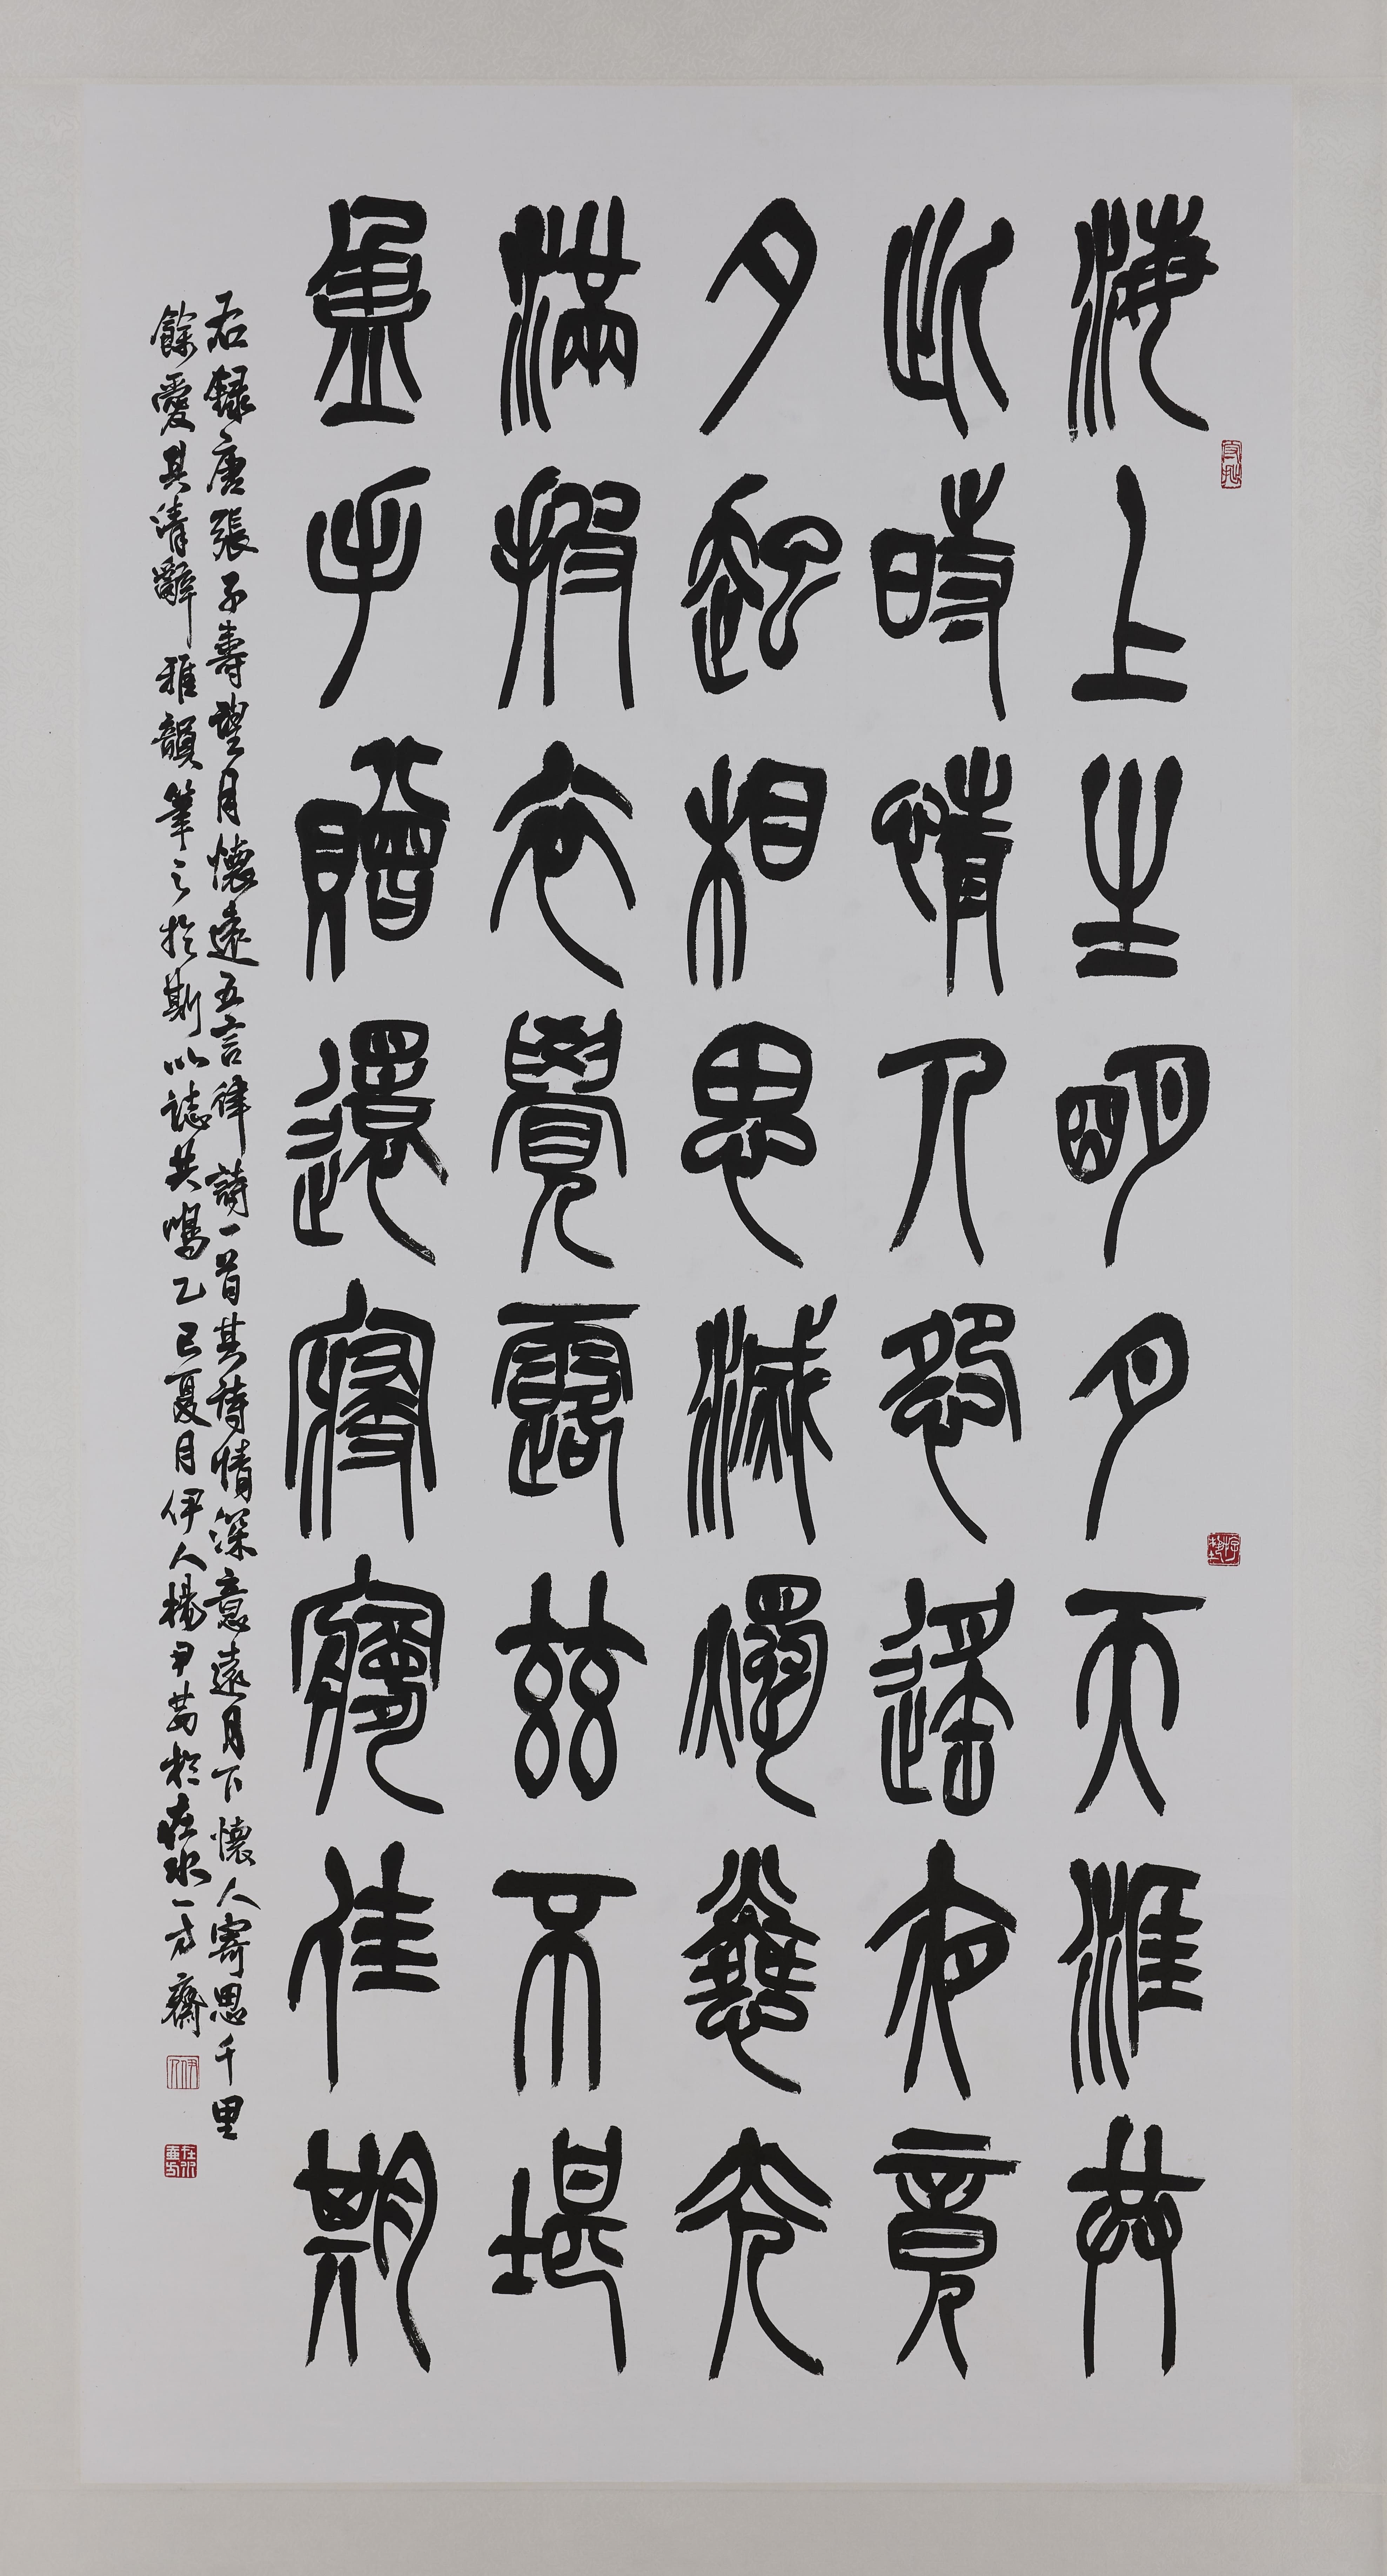 海上生明月天涯共
此時情人怨遙夜竟
夕起相思滅燭憐光
滿披衣覺露茲不堪
盈手贈還寢夢佳期
右錄唐張子壽望月懷遠五言律詩一首其詩情深意遠月下懷人寄思千里
餘愛其清辭雅韻筆之於斯以誌共鳴乙巳夏月伊人楊尹於在水一方齋
伊人
在水壹方